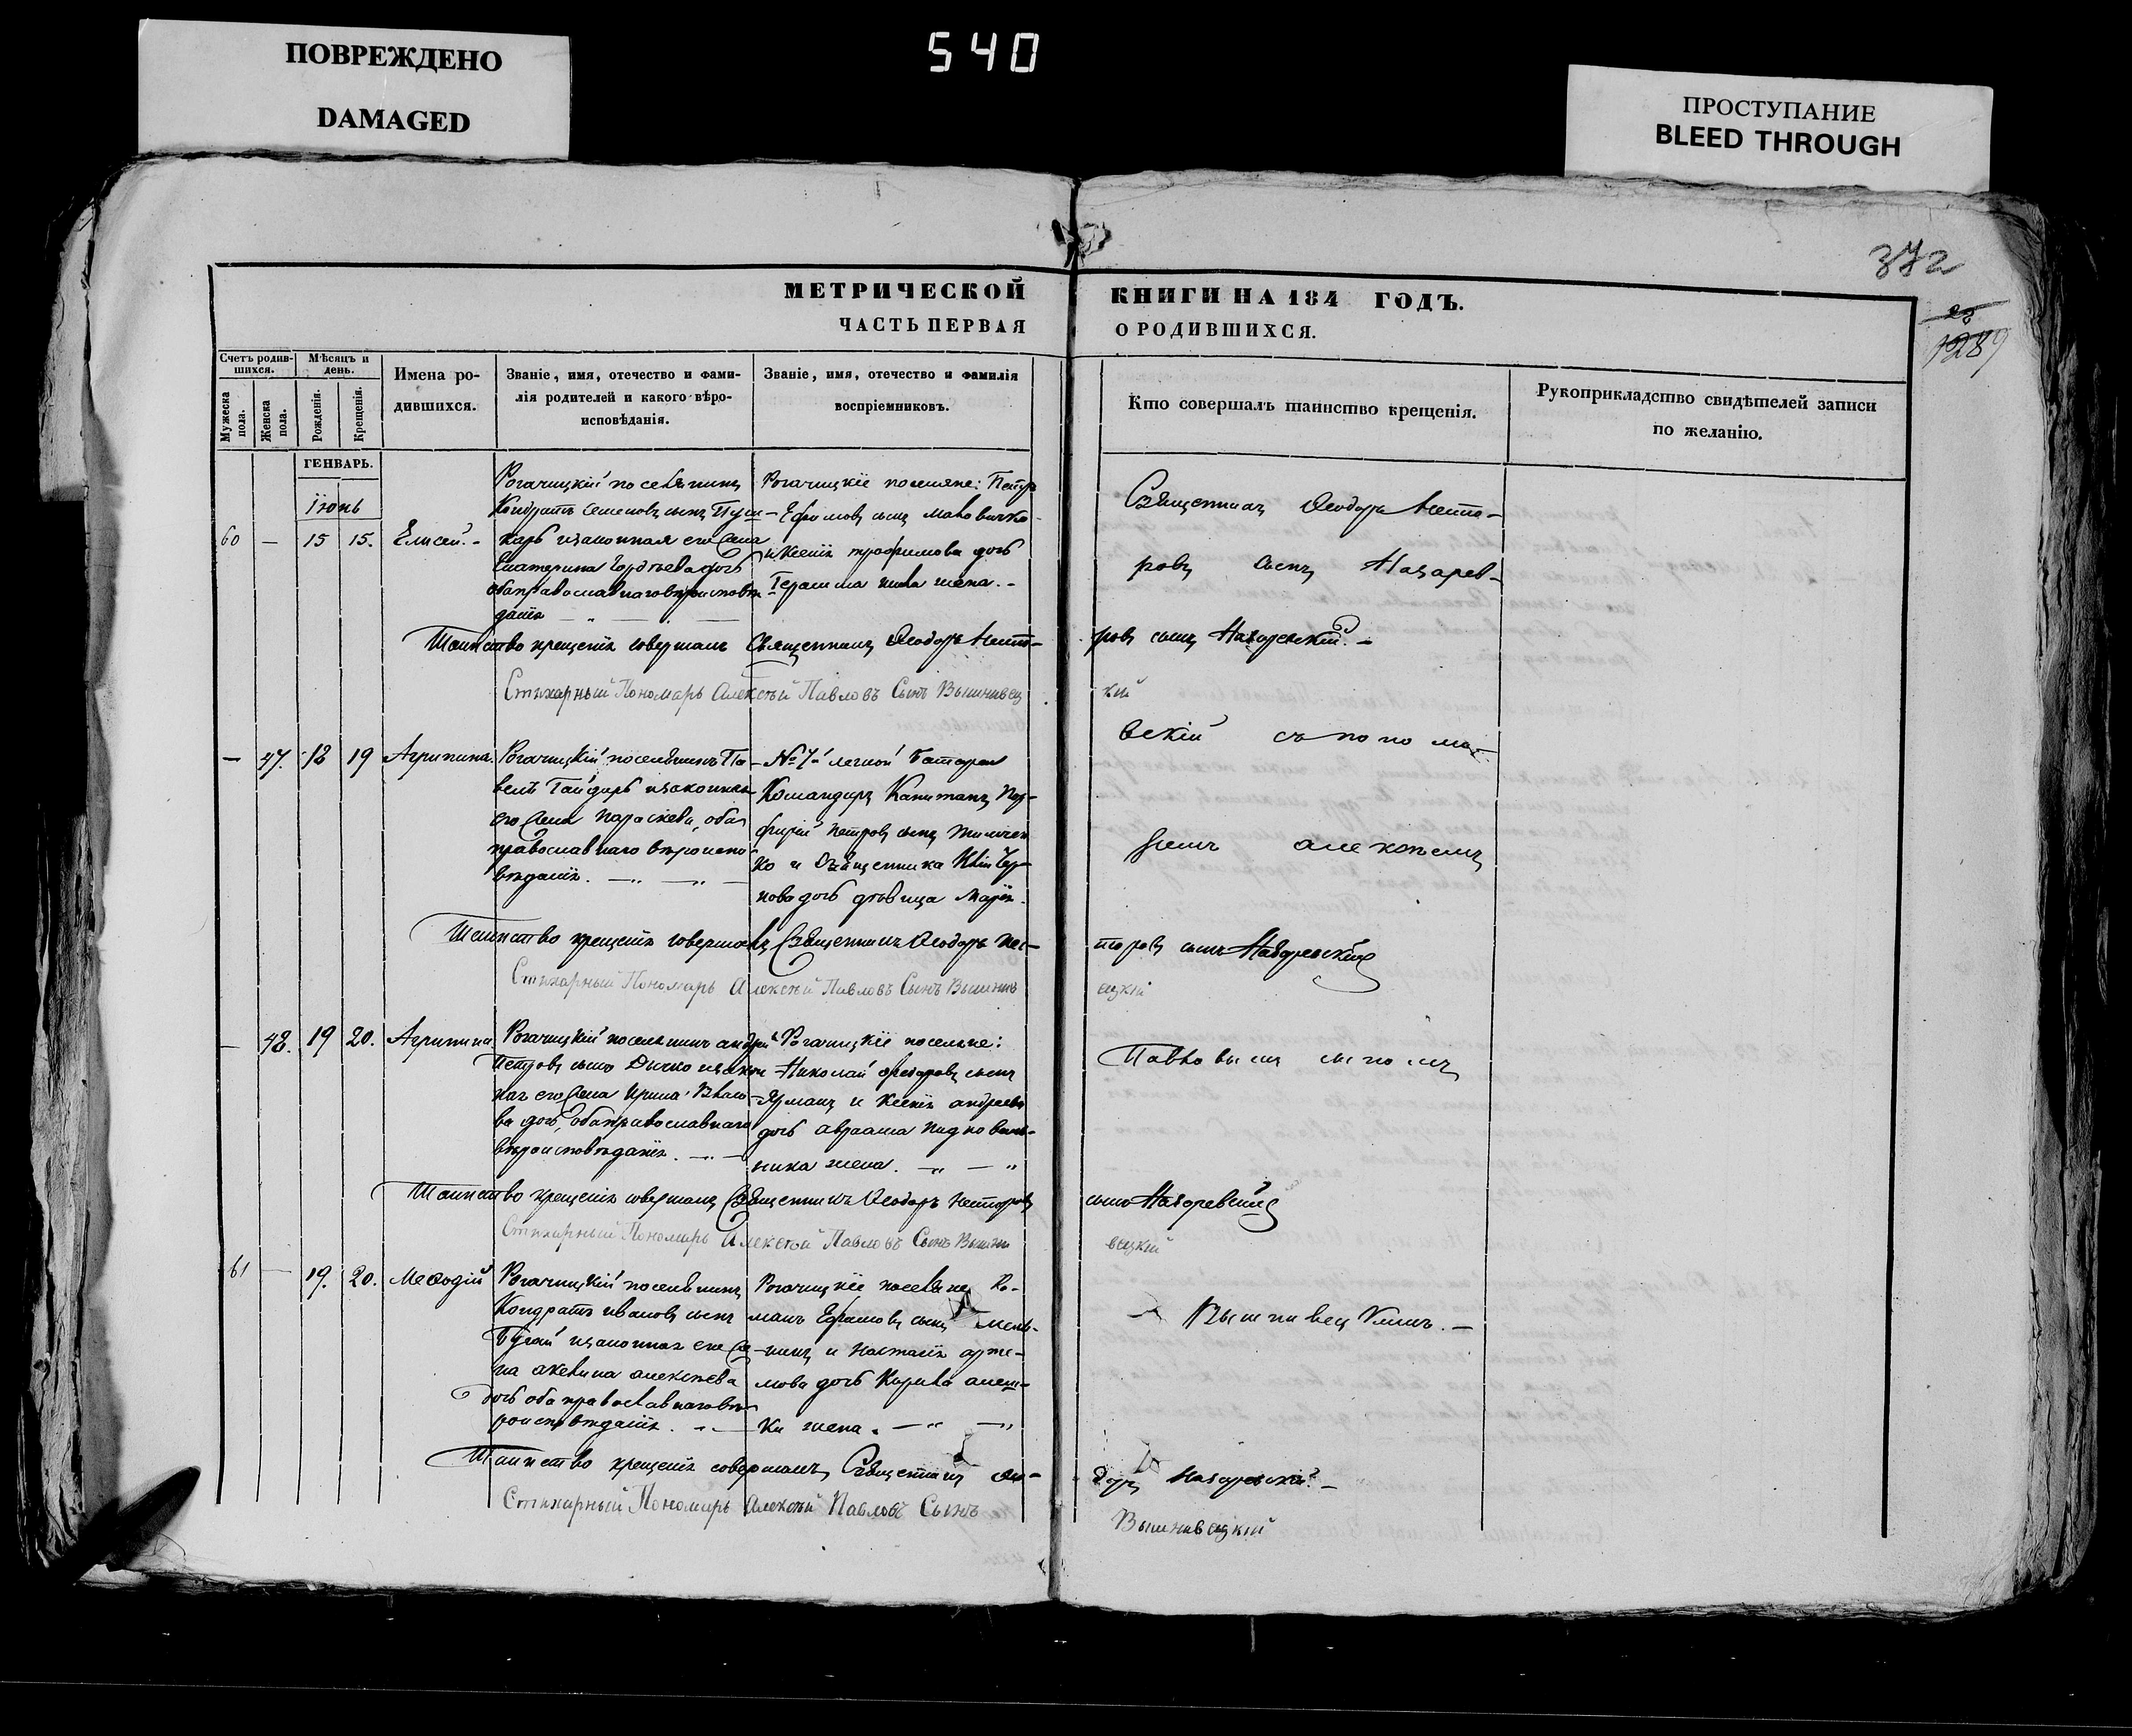 ПОВРЕЖДЕНО
DAMAGED
540
ПРОСТУПАНИЕ
BLEED THROUGH
372
МЕТРИЧЕСКОЙ КНИГИ НА 184 ГОДЪ.
ЧАСТЬ ПЕРВАЯ О РОДИВШИХСЯ.
Счетъ родив-
шихся.
Мужеска пола.
Женска пола.
Мѣсяцъ и
день.
Рожденія.
Крещенія.
Имена ро-
дившихся.
Званіе, имя, отечество и фами-
лія родителей и какого вѣро-
исповѣданія.
Званіе, имя, отечество и фамилія
воспріемниковъ.
Кто совершалъ таинство крещенія.
Рукоприкладство свидѣтелей записи
по желанію.
ГЕНВАРЬ.
Іюнь
60 — 15 15. Елисей. -
Рогачицкій поселянинъ
Кондратъ Семеновъ сынъ Пуш-
карь изаконная его жена
Екатерина Гордѣева дочь
оба православнаго вѣроисповѣ
данія
Рогачицкіе поселяне: Петръ
Ефимовъ сынъ
и Ксенія трофимова дочь
жена. -
Священникъ Ѳеодоръ Несто-
ровъ сынъ Назарев-
Таинство крещенія совершалъ Священникъ Ѳеодоръ Несто-
ровъ сынъ Назаревскій. -
Стихарный Пономарь Алексѣй Павловъ Сынъ Вышнивец
кій
— 47. 18 19 Агрипина.
Рогачицкій поселянинъ Па-
велъ Гайдарь изаконная
его жена Параскева, оба
православнаго вѣроиспо
вѣданія.
№ 7й легкой батареи
Командиръ Капитанъ Пор-
фирій Петровъ сынъ
ко и Священника
нова дочь дѣвица Марія.
вскій съ поно ма-
ремъ алексѣемъ
Таинство крещенія совершалъ Священникъ Ѳеодоръ Нес-
торовъ сынъ Назаревскій
Стихарный Пономарь Алексѣй Павловъ Сынъ Вышнив
ецкій
— 48. 19 20. Агрипина
Рогачицкій поселянинъ андрей
Петровъ сынъ Дычко изакон
ная его жена Ирина Власо-
ва дочь, оба православнаго
вѣроисповѣданія.
Рогачицкіе поселяне:
Николай федоровъ сынъ
Ярманъ и Ксенія андреева
дочь авраама
ника жена.
Павловымъ сыномъ
Таинство крещенія совершалъ Священникъ Ѳеодоръ Несторовъ
сынъ Назаревскій
Стихарный Пономарь Алексѣй Павловъ Сынъ Вышни
вецкій
61 — 19. 20. Меѳодій
Рогачицкій поселянинъ
Кондратъ ивановъ сынъ
Бугай изаконная его же-
на акелина алексѣева
дочь оба православнаго вѣ-
роисповѣданія.
Рогачицкіе поселяне Ро-
манъ Ефимовъ сынъ Мель-
никъ и Настасія арте-
мова дочь Кирила
ки жена.
Вышнивецкимъ. —
Таинство крещенія совершалъ Священникъ Ѳео-
доръ Назаревскій. -
Стихарный Пономарь Алексѣй Павловъ Сынъ
Вышнивецкій